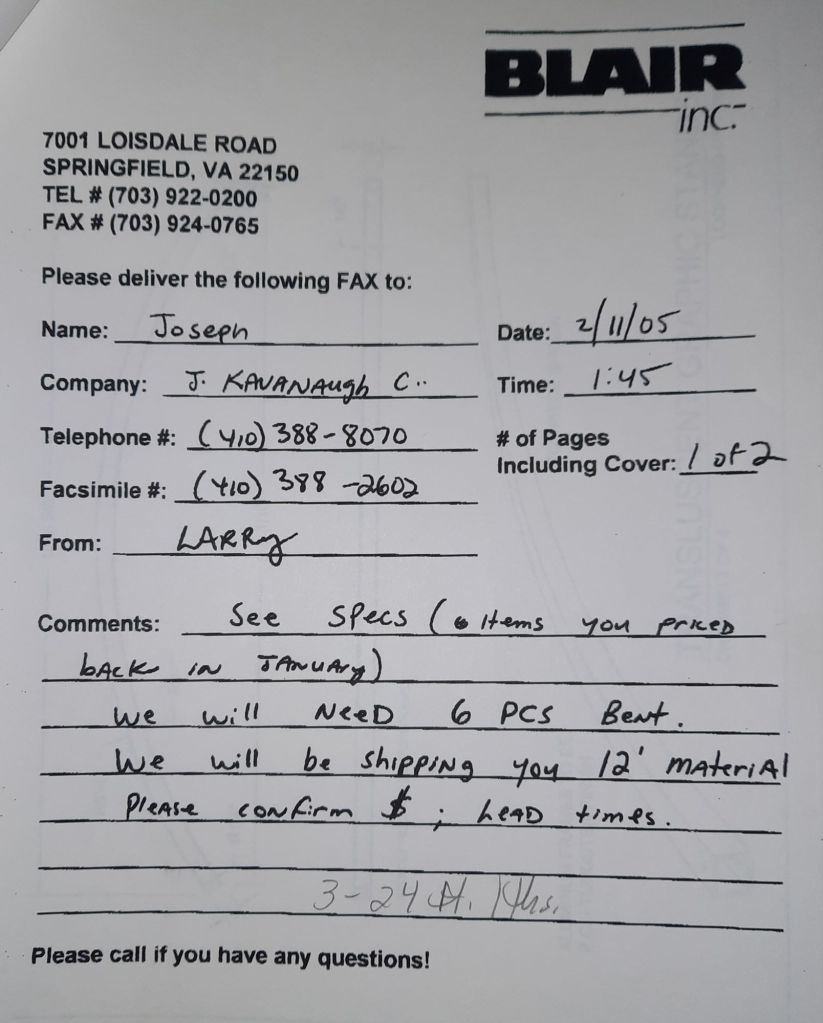 BLAIR
inc.
7001 LOISDALE ROAD
SPRINGFIELD, VA 22150
TEL # (703) 922-0200
FAX # (703) 924-0765
Please deliver the following FAX to:
Name: Joseph
Date: 2/11/05
Company: J. KAVANAugh C..
Time: 1:45
Telephone #: (410) 388-8070
# of Pages
Including Cover: 1 of 2
Facsimile #: (410) 388-2602
From: LARRy
Comments: See SPecs (6 Items you priced
bAck in JANUARy)
We will NeeD 6 PCS Bent.
We will be shipping you 12' mAteriAl
PleAse confirm $ ; LeAD times.
3-24 ft. lgths.
Please call if you have any questions!